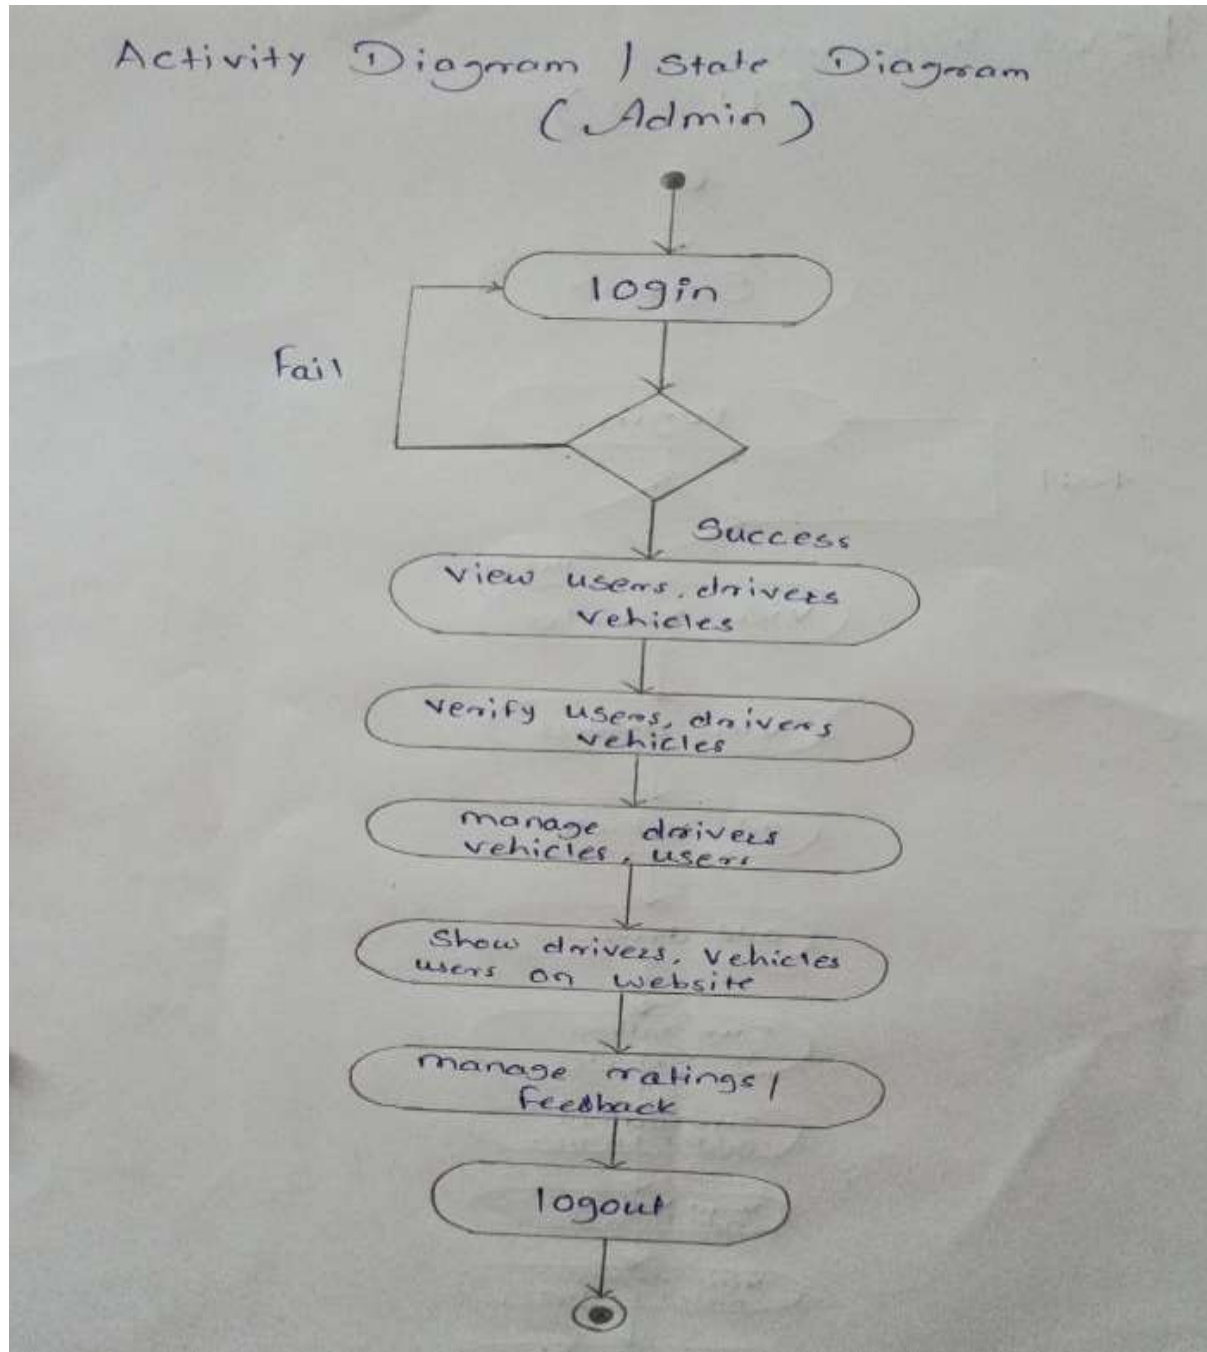 Activity Diagram / State Diagram
(Admin)
login
Fail
Success
view users, drivers
vehicles
verify users, drivers
vehicles
manage drivers
vehicles, users
Show drivers, vehicles
users on website
manage ratings/
feedback
logout